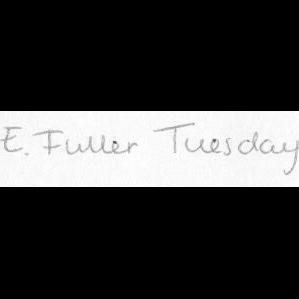 E. Fuller Tuesday